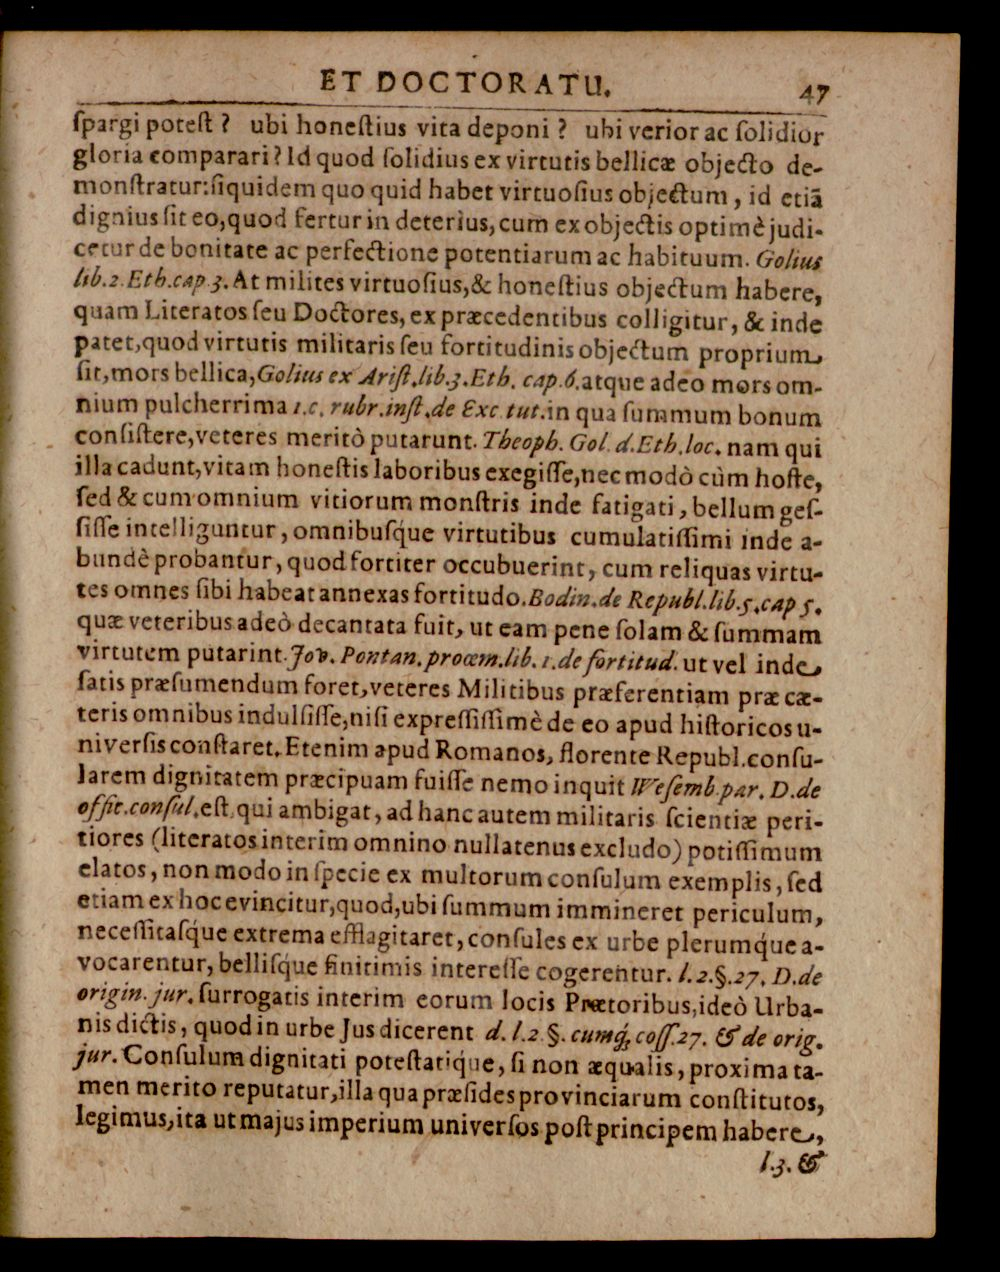 ET DOCTORATU. 47
ſpargi poteſt? ubi honeſtius vita deponi? ubi verior ac ſolidior
gloria comparari? Id quod ſolidius ex virtutis bellicæ objecto de-
monſtratur: ſiquidem quo quid habet virtuoſius objectum, id etiã
dignius ſit eo, quod fertur in deterius, cum ex objectis optimè judi-
cetur de bonitate ac perfectione potentiarum ac habituum. Golius
lib. 2. Eth. cap 3. At milites virtuoſius, & honeſtius objectum habere,
quam Literatos ſeu Doctores, ex præcedentibus colligitur, & inde
patet, quod virtutis militaris ſeu fortitudinis objectum proprium
ſit, mors bellica, Golius ex Ariſt. lib. 3. Eth. cap. 6. atque adeo mors om-
nium pulcherrima 1. c. rubr. inſt. de Exc. tut. in qua ſummum bonum
conſiſtere, veteres meritò putarunt. Theoph. Gol. d. Eth. loc. nam qui
illa cadunt, vitam honeſtis laboribus exegiſſe, nec modò cùm hoſte,
ſed & cum omnium vitiorum monſtris inde fatigati, bellum geſ-
ſiſſe intelliguntur, omnibuſq́ue virtutibus cumulatiſſimi inde a-
bundè probantur, quod fortiter occubuerint, cum reliquas virtu-
tes omnes ſibi habeat annexas fortitudo. Bodin. de Republ. lib. 5. cap 5.
quæ veteribus adeò decantata fuit, ut eam pene ſolam & ſummam
virtutem putarint. Jov. Pontan. proœm. lib. 1. de fortitud. ut vel inde
ſatis præſumendum foret, veteres Militibus præferentiam præ cæ-
teris omnibus indulſiſſe, niſi expreſſiſſimè de eo apud hiſtoricos u-
niverſis conſtaret. Etenim apud Romanos, florente Republ. conſu-
larem dignitatem præcipuam fuiſſe nemo inquit Weſemb. par. D. de
offic. conſul. eſt qui ambigat, ad hanc autem militaris ſcientiæ peri-
tiores (literatos interim omnino nullatenus excludo) potiſſimum
elatos, non modo in ſpecie ex multorum conſulum exemplis, ſed
etiam ex hoc evincitur, quod, ubi ſummum immineret periculum,
neceſſitaſq́ue extrema efflagitaret, conſules ex urbe plerumq́ue a-
vocarentur, belliſq́ue finitimis intereſſe cogerentur. l. 2. §. 27. D. de
origin. jur. ſurrogatis interim eorum locis Prætoribus, ideò Urba-
nis dictis, quod in urbe Jus dicerent d. l. 2 §. cumq́; coſſ. 27. & de orig.
jur. Conſulum dignitati poteſtatiq́ue, ſi non æqualis, proxima ta-
men merito reputatur, illa qua præſides provinciarum conſtitutos,
legimus, ita ut majus imperium univerſos poſt principem habere,
l. 3. &